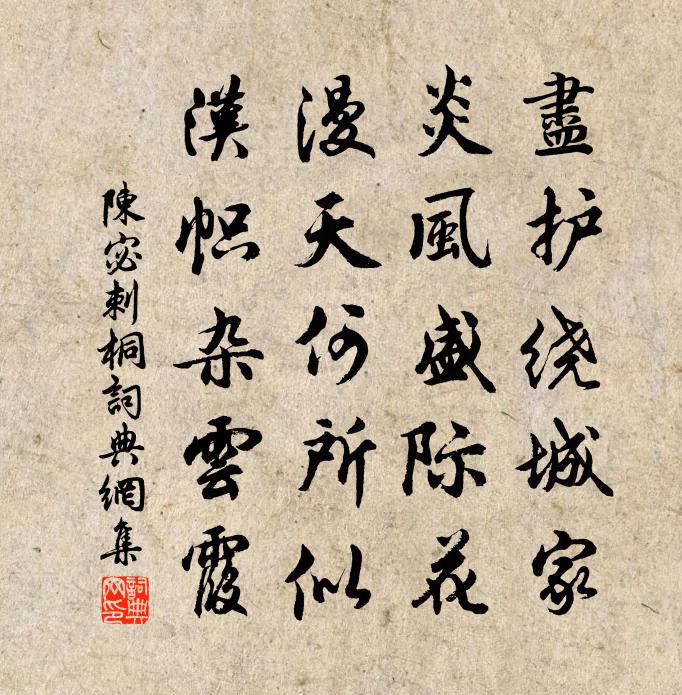 盡护绕城家
炎風盛际花
漫天何所似
漢帜杂雲霞
陳宓刺桐詞典網集
詞典网印